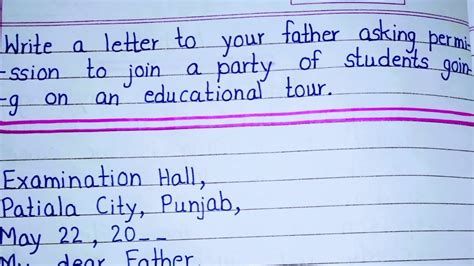 Write a letter to your father asking permi
-ssion to join a party of students goin-
-g on an educational tour.
Examination Hall,
Patiala City, Punjab,
May 22, 20--
My dear Father,